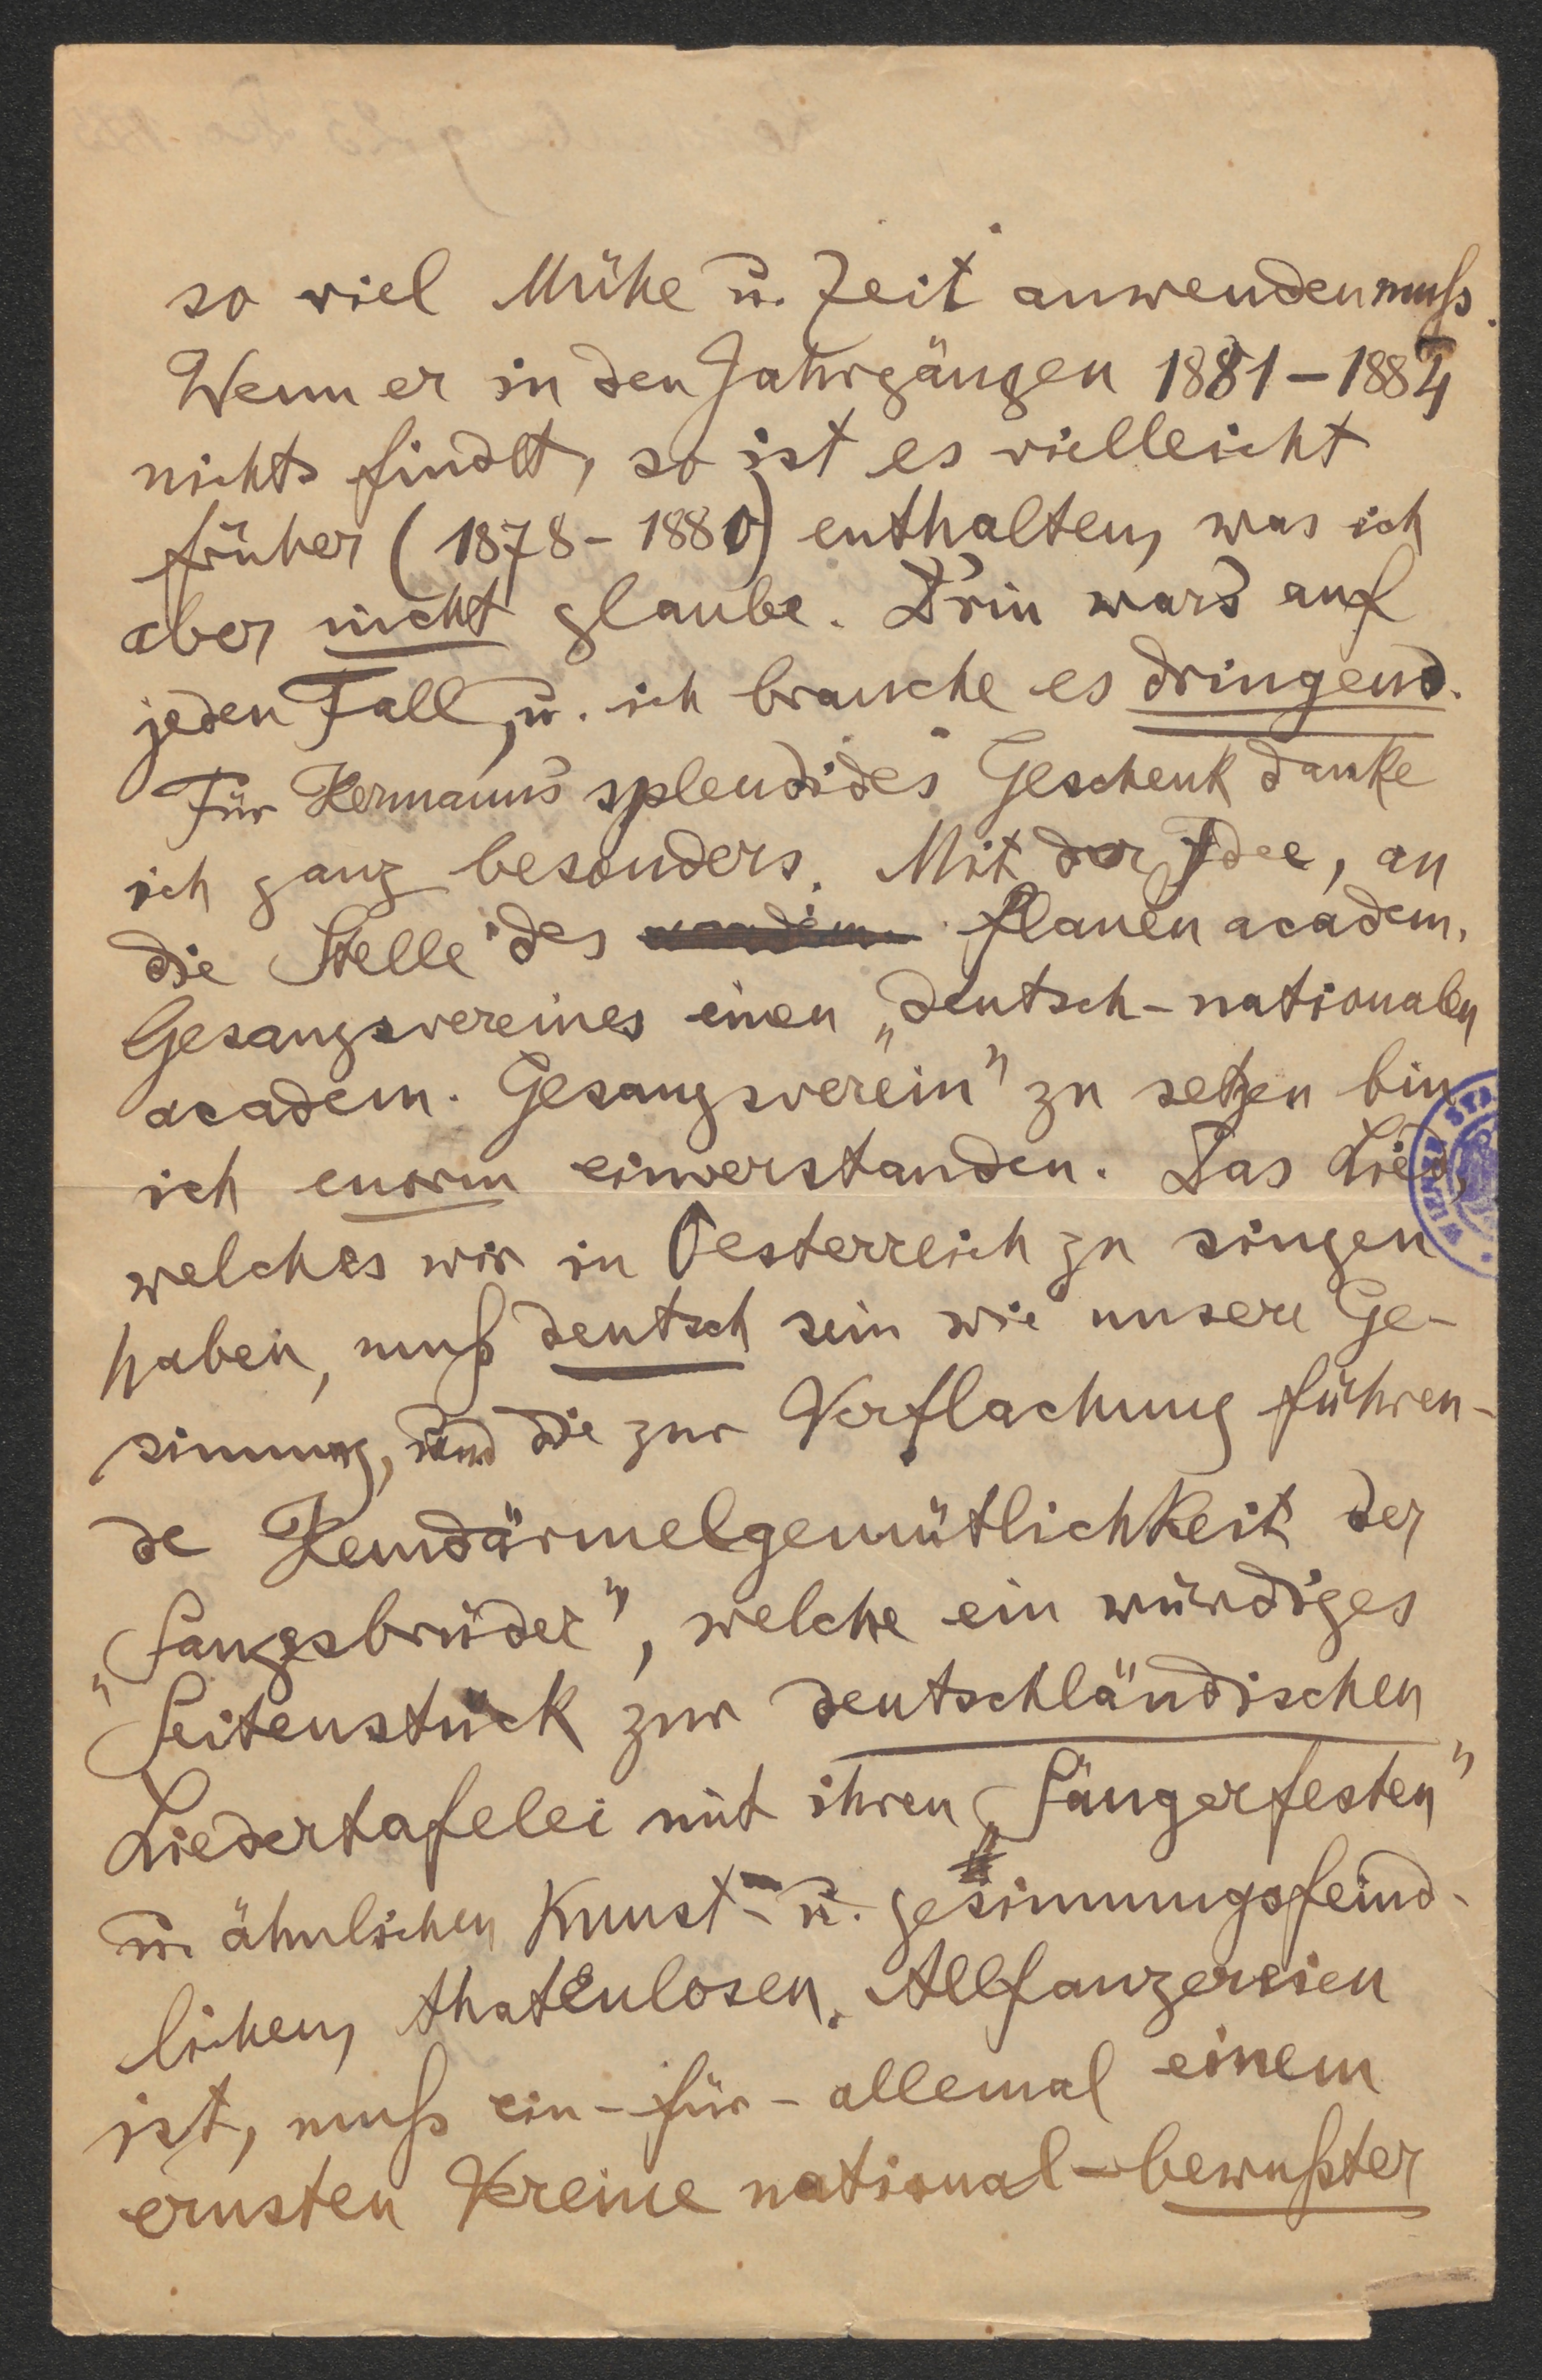 so viel Mühe u. Zeit anwenden muß.
Wenn er in den Jahrgängen 1881–1884
nichts findet, so ist es vielleicht
früher (1878–1880) enthalten, was ich
aber nicht glaube. D'rin war's auf
jeden Fall, u. ich brauche es dringend.
Für Hermann's splendides Geschenk danke
ich ganz besonders. Mit der Idee, an
die Stelle des flauen academ.
Gesangsvereines einen „deutsch-nationalen
academ. Gesangsverein" zu setzen bin
ich enorm einverstanden. Das Lied,
welches wir in Oesterreich zu singen
haben, muß deutsch sein wie unsere Ge-
sinnung, und die zur Verflachung führen-
de Hemdärmelgemütlichkeit der
„Sangesbrüder", welche ein würdiges
Seitenstück zur deutschländischen
Liedertafelei mit ihren „Sängerfesten"
u. ähnlichen Kunst- u. gesinnungsfeind-
lichen, thatenlosen Alfanzereien
ist, muß ein-für-allemal einem
ernsten Vereine national-bewußter
WIENER ST